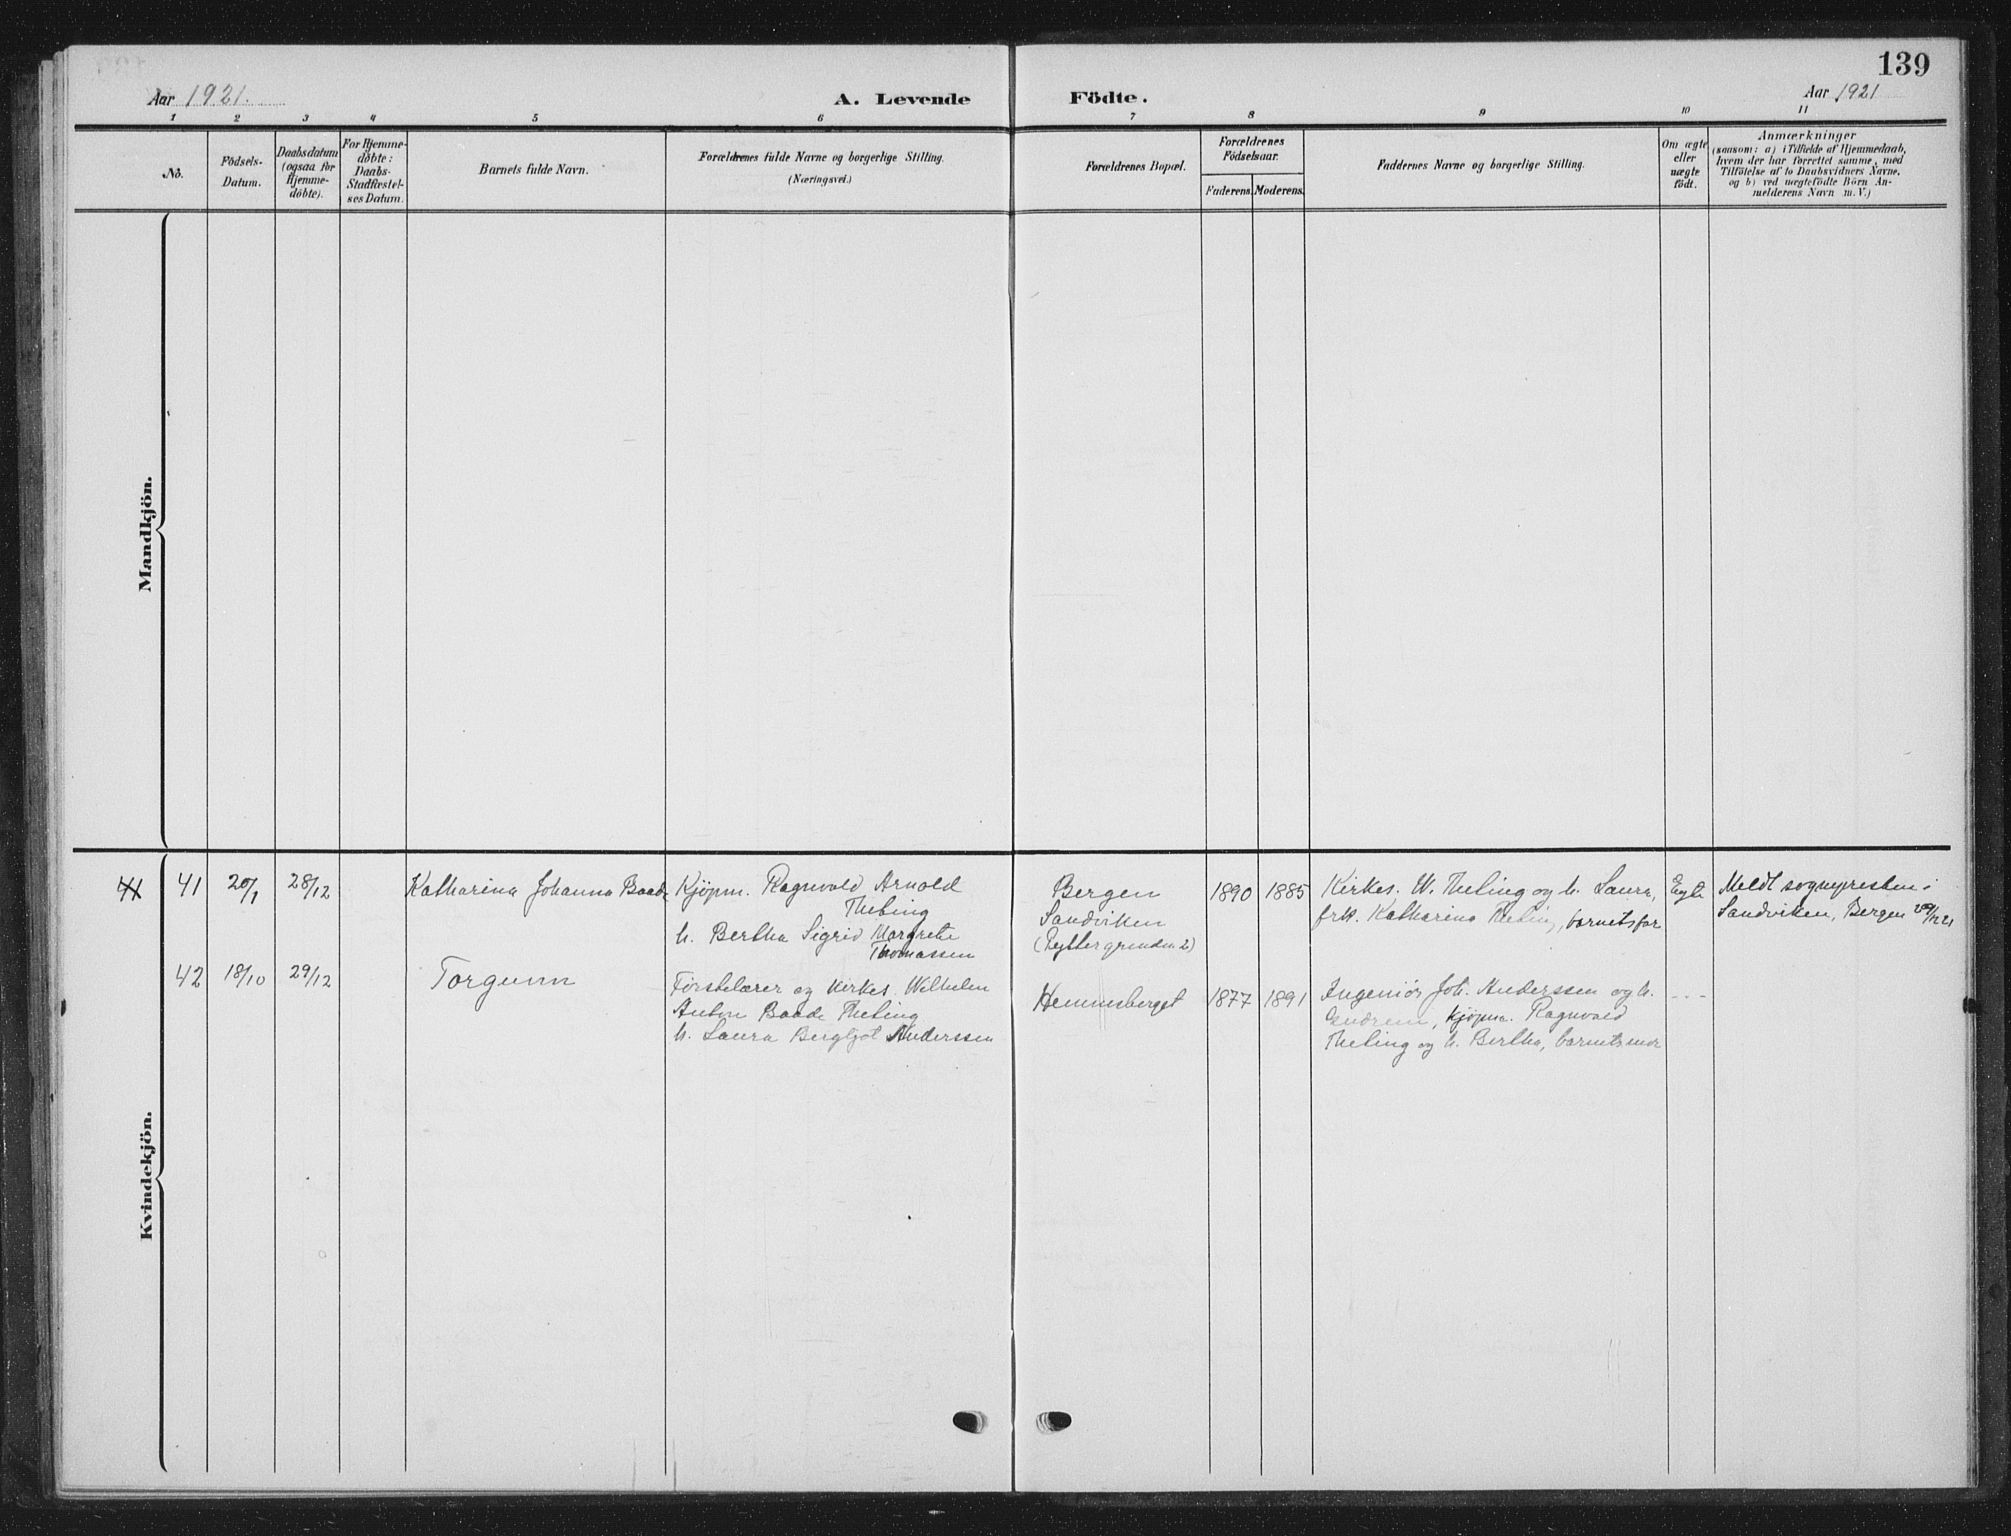 139
Aar 1921.
A. Levende Födte.
Aar 1921
1 2 3 4 5 6 7 8 9 10 11
No.
Födsels-
Datum.
Daabsdatum
(ogsaa for
Hjemme-
döbte).
For Hjemme-
döbte:
Daabs-
Stadfæstel-
ses Datum.
Barnets fulde Navn.
Forældrenes fulde Navne og borgerlige Stilling.
(Næringsvei.)
Forældrenes Bopæl.
Forældrenes
Födselsaar.
Faderens. Moderens.
Faddernes Navne og borgerlige Stilling.
Om ægte
eller
uægte
födt.
Anmærkninger
(saasom: a) i Tilfælde af Hjemmedaab,
hvem der har forrettet samme, med
Tilföielse af to Daabsvidners Navne,
og b) ved uægtefödte Börn An-
melderens Navn m. V.)
Mandkjön.
Kvindekjön.
41 41 20/1 28/12 Katharina Johanna Baade
Kjöpm. Ragnvald Arnold
Theting
h. Bertha Sigrid Margrete
Thomassen
Bergen
Sandviken
1890 1885
Kirkes. W. Theting og h. Laura,
frk. Katharina Theting, barnets far
Egte
Meldt sognepresten i
Sandviken, Bergen 29/12 21
42 18/10 29/12 Torgunn
Förstelærer og kirkes. Wilhelm
Anton Baade Theting
h. Laura Bergljot Anderssen
Hemnesberget
1877 1891
Ingeniör Joh. Anderssen og h.
kjöpm. Ragnvald
Theting og h. Bertha, barnets mor
- - -